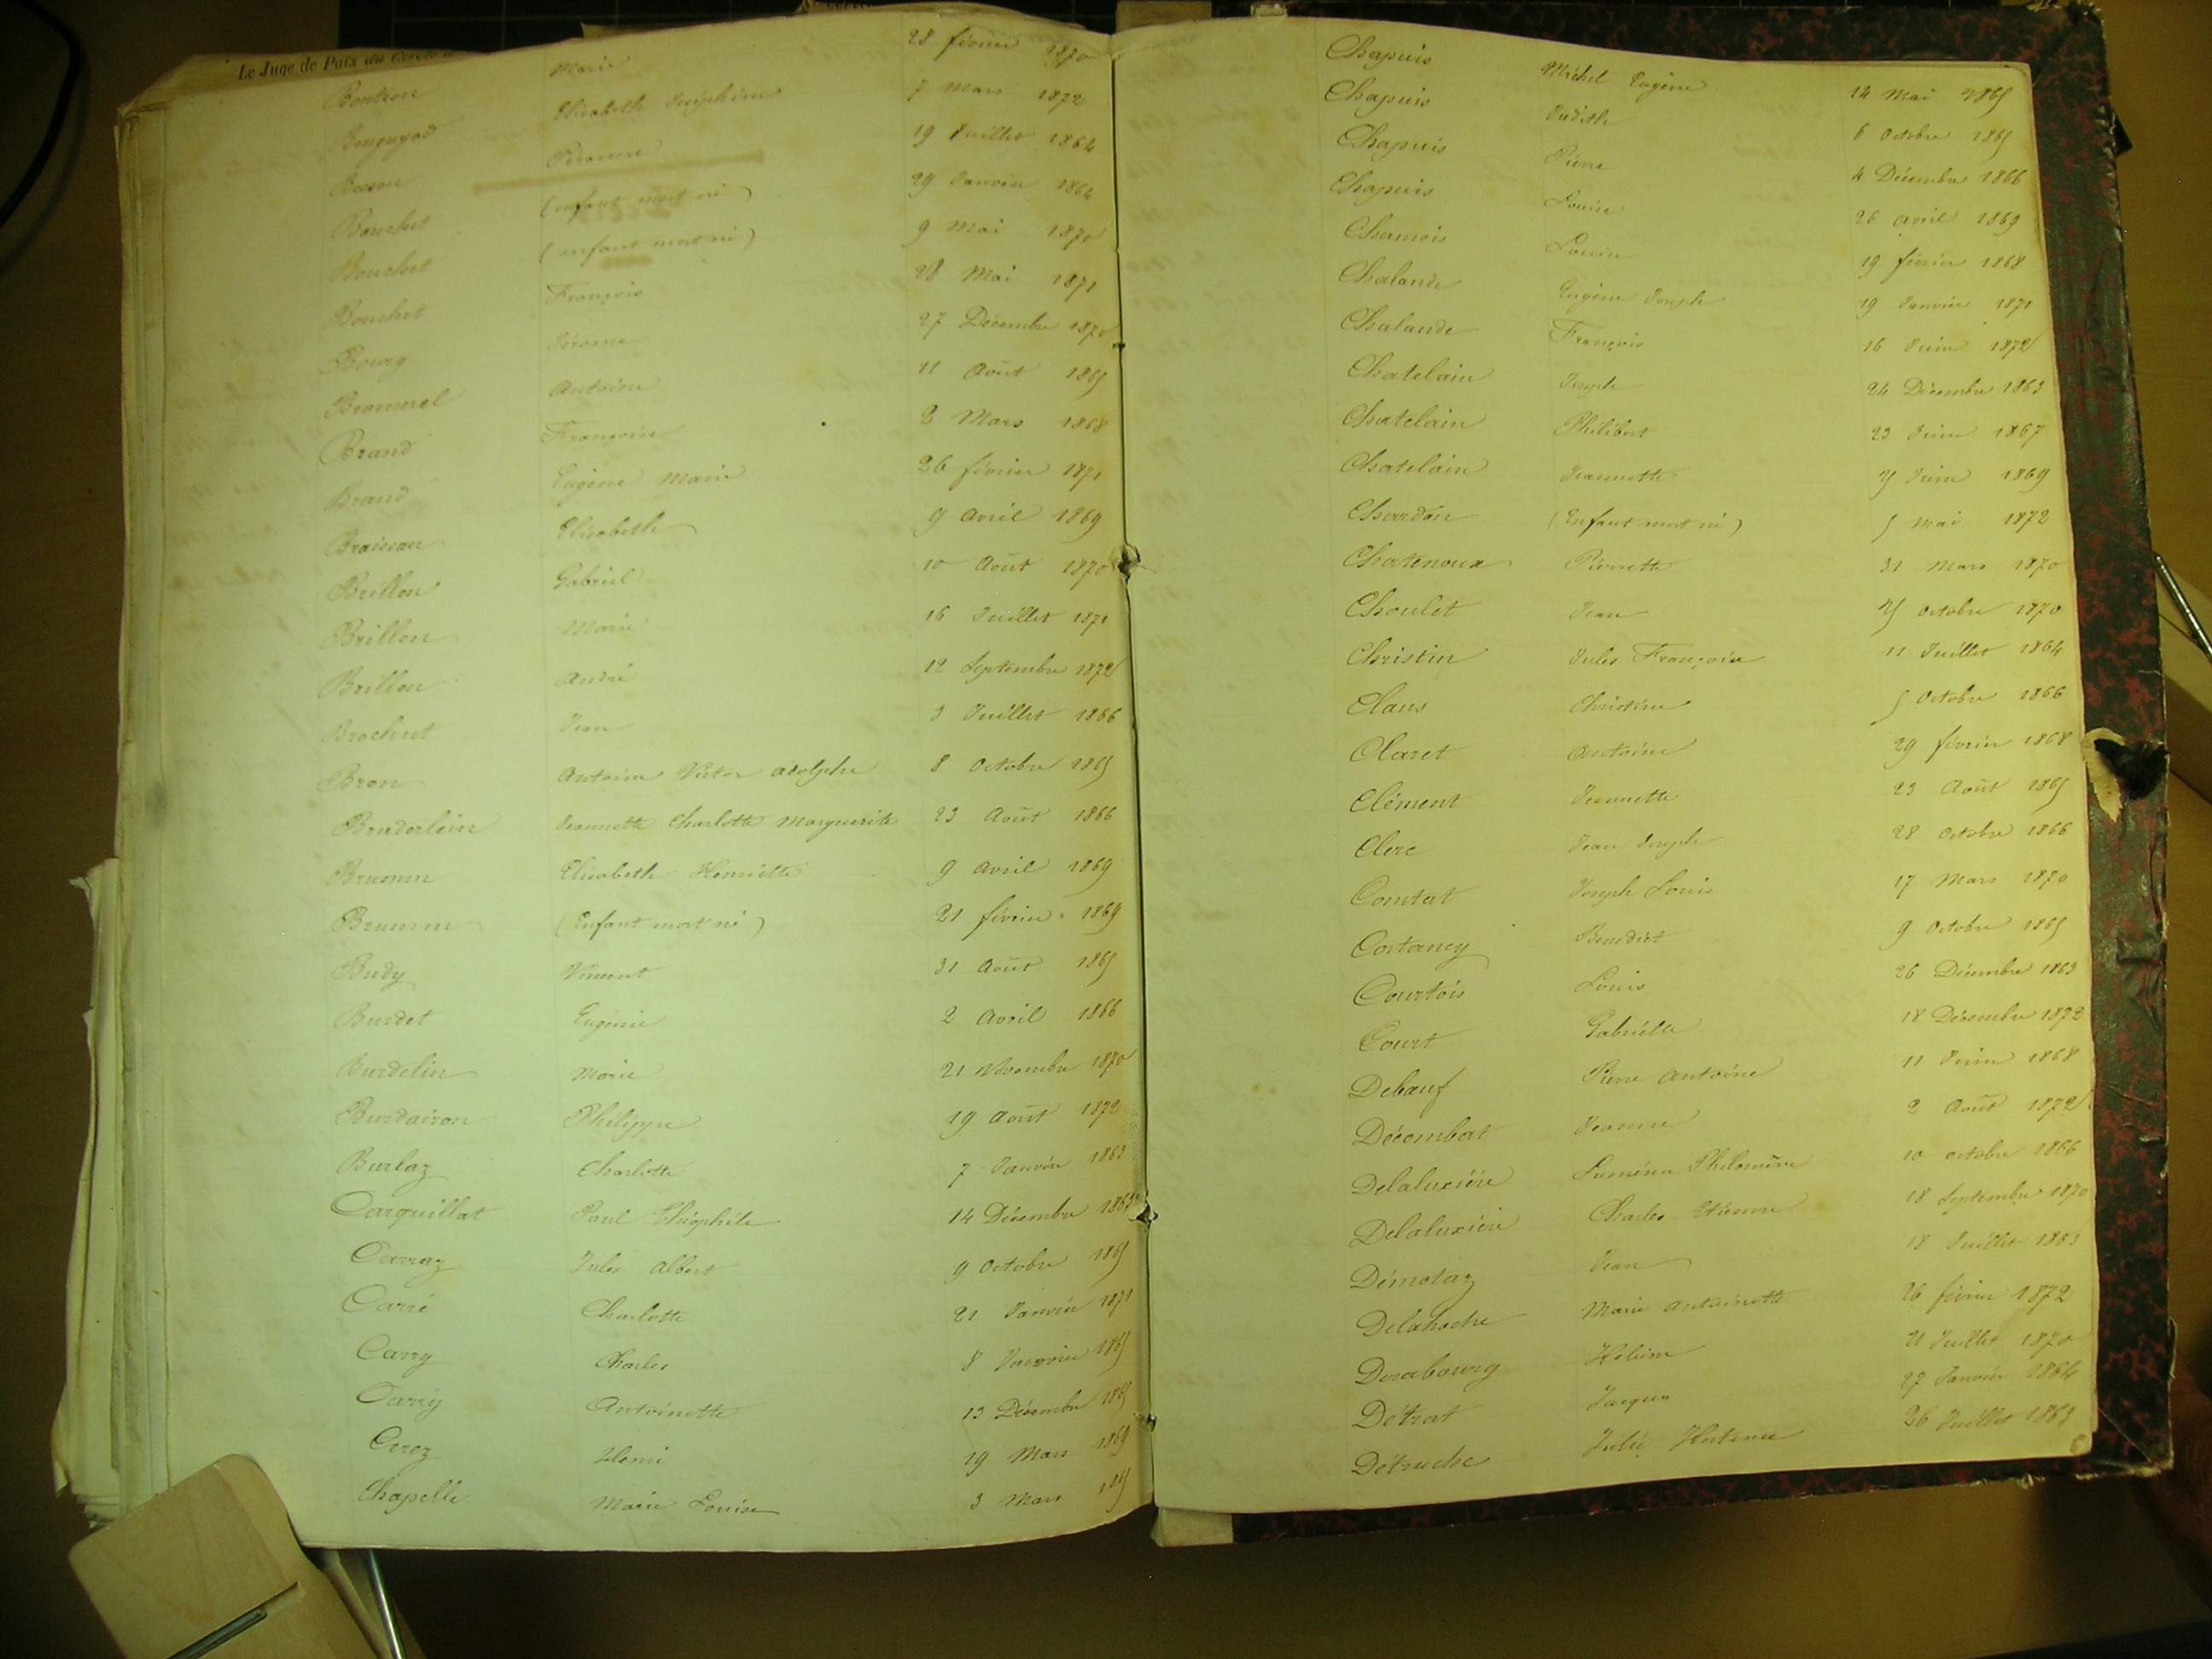 Le Juge de Paix du Cercle d
Bontron Marie 28 février 1870
Bouguyod Elisabeth Joséphine 7 Mars 1872
Bosson Péronne 19 Juillet 1864
Bouchet (enfant mort né) 29 Janvier 1864
Bouchet (enfant mort né) 9 Mai 1870
Bouchet François 28 Mai 1871
Bourg Jérome 27 Décembre
Antoine 11 Août 1865
Brand Françoise 2 Mars 1868
Brand Eugène Marie 26 février 1871
Braissan Elisabeth 9 avril 1869
Brillon Gabriel 10 Août 1870
Brillon Marie 16 Juillet 1871
Brillon André 12 Septembre 1872
Brochut Jean 3 Juillet 1866
Bron Antoine Victor Adolphe 8 Octobre 1865
Bruderlein Jeannette Charlotte Marguerite 23 Août 1866
Brumm Elisabeth Henriette 9 avril 1869
Brumm (Enfant mort né) 21 février 1869
Budy Vincent 31 Août 1865
Burdet Eugénie 2 Avril 1866
Burdelin Marie 21 Novembre 1870
Burdairon Philippe 19 Août 1872
Burlaz Charlotte 7 Janvier 1863
Carquillat Paul Théophile 14 Décembre
Carraz Jules Albert 9 Octobre 1865
Carré Charlotte 21 Janvier 1871
Carry Charles 8 Janvier 1865
Carry Antoinette 13 Décembre 1865
Cerez Henri 19 Mars 1869
Chapelle Marie Louise 3 Mars
Chapuis Michel Eugène 14 Mai 1865
Chapuis Judith 6 Octobre 1865
Chapuis Pierre 4 Décembre 1866
Chapuis Louise 26 avril 1869
Chamois Louise 19 février 1868
Chalande Eugène Joseph 19 Janvier 1871
Chalande François 16 Juin 1872
Chatelain Joseph 24 Décembre 1863
Chatelain Philibert 23 Juin 1867
Chatelain Jeannette Juin 1869
Chardon (Enfant mort né) 5 Mai 1872
Chatenoux Pierrette 31 Mars 1870
Choulet Jean octobre 1870
Christin Jules François 11 Juillet 1864
Claus Christine 5 Octobre 1866
Claret Antoine 29 février 1868
Clément Jeannette 23 Août 1865
Clerc Jean Joseph 28 Octobre 1866
Comtat Joseph Louis 17 Mars 1870
Cortancy Benedict 9 Octobre 1865
Courtois Louis 26 Décembre 1863
Court Gabrielle 18 Décembre 1872
Debauf Pierre Antoine 11 Juin 1868
Décombat Jeanne 2 Août 1872
Delaluxière Philomène 10 octobre 1866
Delaluxière Charles Etienne 18 Septembre 1870
Démotaz Jean 18 Juillet 1863
Delahoche Marie Antoinette 26 février 1872
Derabourg Hélène 21 Juillet 1870
Détrat Jacques 27 Janvier 1864
Détruche Julie Hortense 26 Juillet 1863